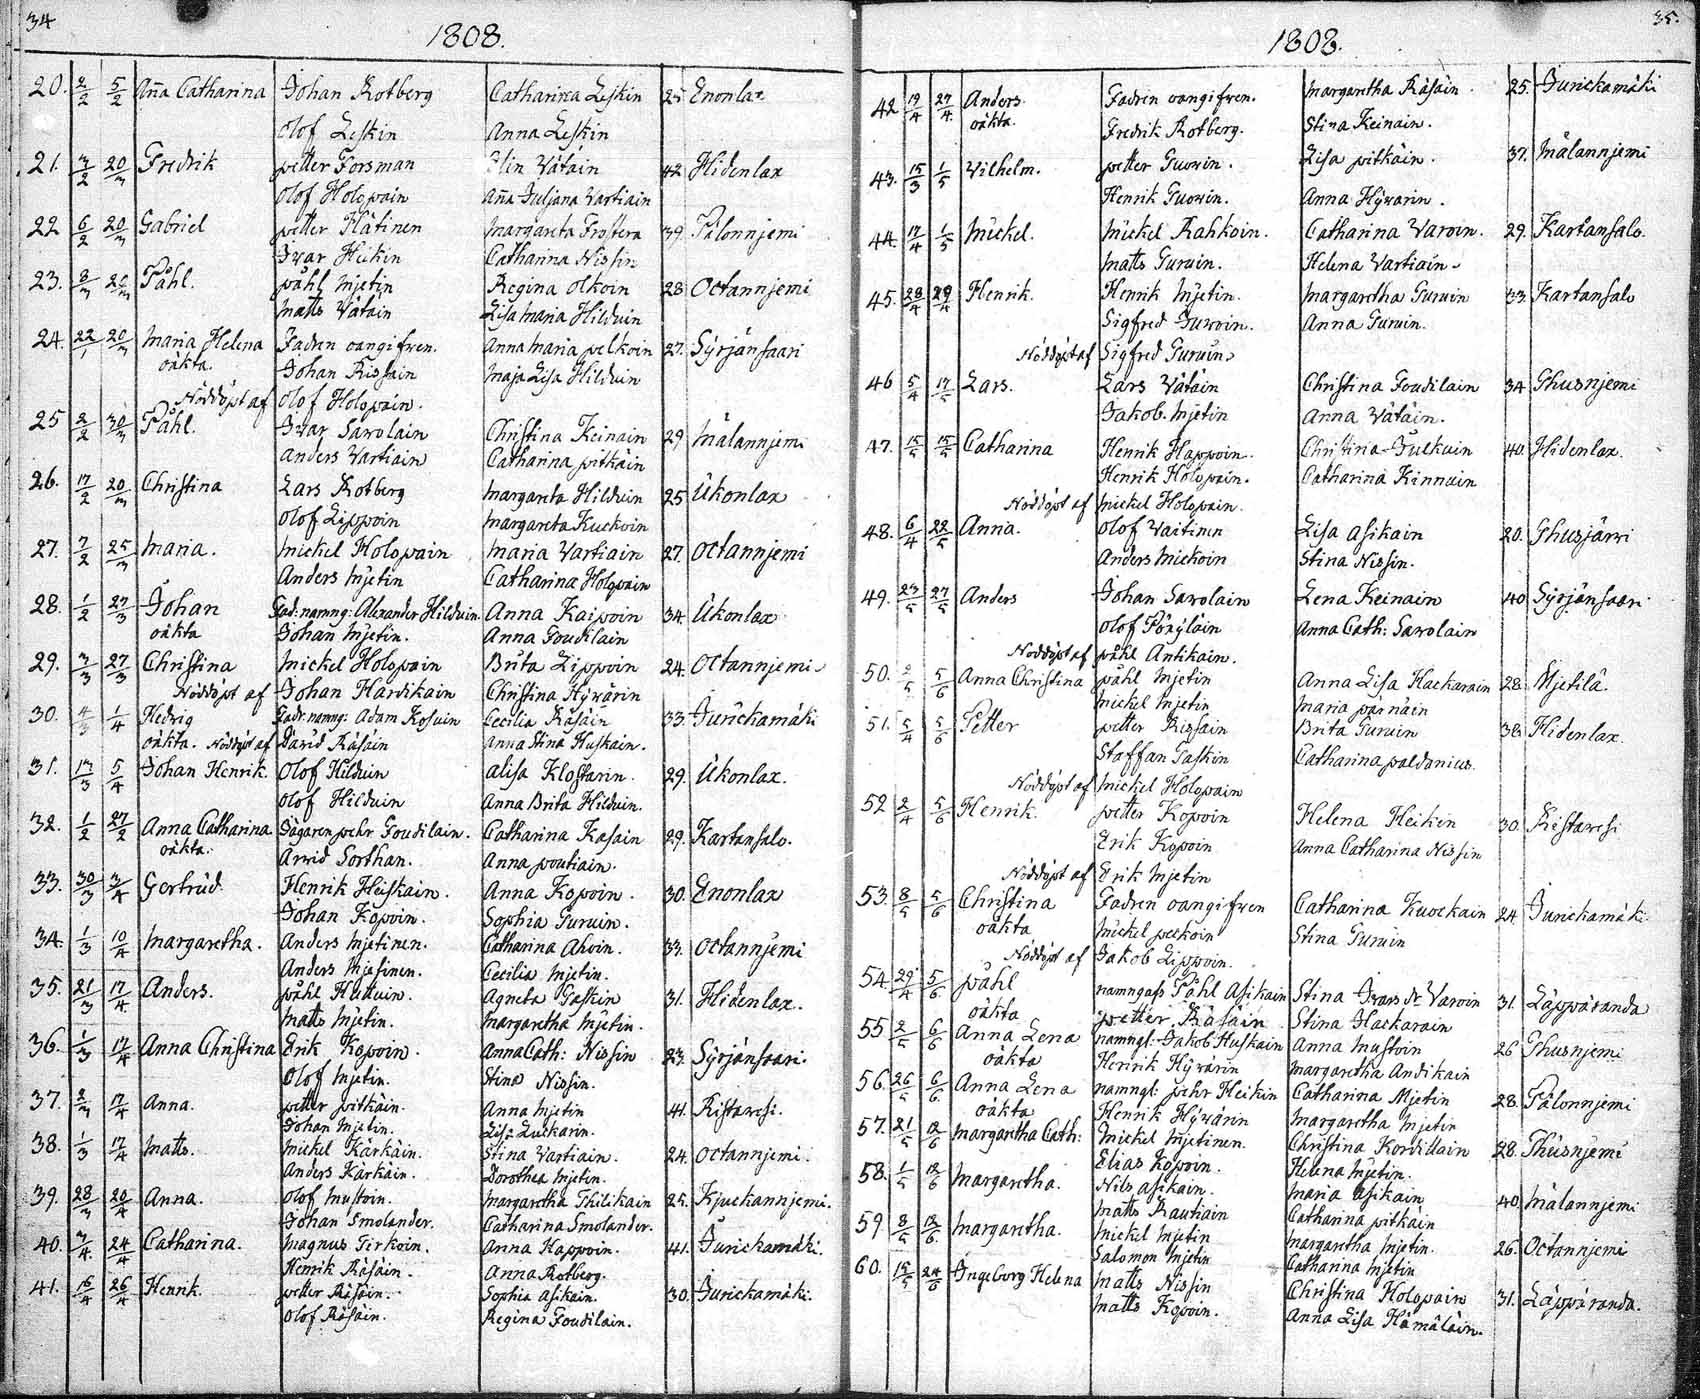 34
1808.
20. 2/2 5/2 Aña Catharina Johan Rotberg Catharina Leskin 25 Enonlax
Olof Leskin Anna Leskin
21. 3/2 20/3 Fredrik petter Forsman Elin Wätäin 42 Hidenlax
Olof Holopain Aña Juljana Vartiain
22 6/2 20/3 Gabriel petter Hätinen Margareta Frostera 39. Pålonnjemi
Ivar Heikin Catharina Nissin
23. 8/3 20/3 Påhl. påhl Mjetin Regina Olkoin 28 Octannjemi
Matts Wätäin Lisa Maria Hilduin
24. 22/1 20/3 Maria Helena Fadren oangifren. Anna Maria pelkoin 27. Syrjänsaari
oäkta. Johan Rissain Maja Lisa Hilduin
Nöddöpt af Olof Holopain.
25 2/2 30/3 Påhl. Ivar Savolain Christina Keinain 29 Mälannjemi
Anders Vartiain Catharina pitkäin
26. 17/2 20/3 Christina Lars Rotberg Margareta Hilduin 25 Ukonlax
Olof Lippoin Margareta Kuckoin
27. 7/2 25/3 Maria. Mickel Holopain Maria Vartiain 27. Octannjemi
Anders Mjetin Catharina Holopain
28. 1/2 27/3 Johan Fad: namng: Alexander Hilduin. Anna Kaipoin 34. Ukonlax
oäkta Johan Mjetin. Anna Foudilain
29. 3/3 27/3 Christina Mickel Holopain Brita Lippoin 24. Octannjemi
Nöddöpt af Johan Hardikain Christina Hyvärin
30. 4/3 1/4 Hedvig Fadr. namng: Adam Kosuin Cecilia Räsäin 33. Jurickamäki
oäkta. Nöddöpt af David Räsäin Anna Stina Huskain.
31. 13/3 5/4 Johan Henrik. Olof Hilduin Alisa Klostarin. 29. Ukonlax.
Olof Hilduin Anna Brita Hilduin.
32. 1/2 27/2 Anna Catharina Sågaren pehr Foudilain. Catharina Kasain 29. Kartansalo.
oäkta. Arvid Sorthan. Anna poutiain.
33. 30/3 3/4 Gertrud. Henrik Heiskain. Anna Kopoin. 30. Enonlax
Johan Kopoin. Sophia Guruin.
34. 1/3 10/4 Margaretha. Anders Mjetinen. Catharina Ahoin. 33. Octannjemi
Anders Mjetinen. Cecilia Mjetin.
35. 21/3 17/4 Anders. påhl Huttuin. Agneta Gaskin 31. Hidenlax.
Matts Mjetin. Margaretha Mjetin.
36. 1/3 17/4 Anna Christina Erik Kopoin. Anna Cath: Nissin 23. Syrjänsaari.
Olof Mjetin. Stina Nissin.
37. 2/3 17/4 Anna. petter pitkäin. Anna Mjetin 41. Ristavesi.
Johan Mjetin. Lisa Luckarin.
38. 1/3 17/4 Matts. Mickel Kärkäin. Stina Vartiain. 24. Octannjemi.
Anders Kärkäin. Dorothea Mjetin.
39. 28/3 20/4 Anna. Olof Mustoin. Margaretha Thilikain 25. Kjuckannjemi.
Johan Smolander. Catharina Smolander.
40. 3/4 24/4 Catharina. Magnus Tirkoin. Anna Happoin. 41. Jurickamäki.
Henrik Räsäin. Anna Rotberg.
41. 16/4 26/4 Henrik. petter Räsäin. Sophia Asikain. 30. Jurickamäki.
Olof Räsäin. Regina Foudilain.
35.
1808.
42. 19/4 27/4 Anders. Fadren oangifren. Margaretha Räsäin. 25. Jurickamäki
oäkta. Fredrik Rotberg. Stina Keinain.
43. 15/3 1/5 Vilhelm. petter Guroin. Lisa pitkäin. 37. Mälannjemi
Henrik Guroin. Anna Hyvärin.
44. 17/4 1/5 Mickel. Mickel Rahkoin. Catharina Varoin. 29. Kartansalo.
Matts Guruin. Helena Vartiain.
45. 28/4 29/4 Henrik. Henrik Mjetin. Margaretha Guruin 33 Kartansalo
Sigfred Guroin. Anna Guruin.
Nöddöpt af Sigfred Guruin.
46 5/4 17/5 Lars. Lars Wätäin Christina Foudilain 34 Ghusnjemi
Jakob. Mjetin Anna Wätäin.
47. 15/5 15/5 Catharina Henrik Happoin. Christina Julkuin 40. Hidenlax.
Henrik Holopain. Catharina Kinnain
Nöddöpt af Mickel Holopain.
48. 6/4 22/5 Anna. Olof Vaitinen Lisa Asikain 20. Ghusjärvi
Anders Mickoin Stina Nissin.
49. 23/5 27/5 Anders Johan Savolain Lena Keinain 40 Syrjänsaari
Olof Pöxyläin Anna Cath: Savolain
Nöddöpt af påhl Antikain.
50. 2/5 5/6 Anna Christina påhl Mjetin Anna Lisa Hackarain 28. Mjetilä.
Mickel Mjetin Maria parnäin
51. 5/4 5/6 Petter petter Rissain Brita Guruin 38 Hidenlax.
Staffan Gaskin Catharina paldanius.
Nöddöpt af Mickel Holopain
52 2/4 5/6 Henrik. petter Kopoin Helena Heikin 30. Ristavesi
Erik Kopoin Anna Catharina Nissin
Nöddöpt af Erik Mjetin
53. 8/5 5/6 Christina Fadren oangifren Catharina Kuockain 24. Jurickamäki
oäkta Mickel peckoin Stina Guruin
Nöddöpt af Jakob Lippoin.
54 29/4 5/6 påhl namngafs Påhl Asikain Stina Ivars dr Varoin 31. Läppäranda
oäkta petter Räsäin Stina Hackarain
55 2/5 6/6 Anna Lena namngl: Jakob Huskain Anna Mustoin 26 Ghusnjemi
oäkta Henrik Hyvärin Margaretha Andikain
56. 26/5 6/6 Anna Lena namngl: pehr Heikin Catharina Mjetin 28. Pålonnjemi
oäkta Henrik Hyvärin Margaretha Mjetin
57. 21/5 12/6 Margaretha Cath: Mickel Mjetinen. Christina Kordillain 28. Ghusnjemi
Elias Kopoin. Helena Mjetin.
58. 1/5 12/6 Margaretha. Nils Asikain. Maria Asikain 40 Mälannjemi
Matts Rautiain Catharina pitkäin
59 8/5 12/6 Margaretha. Mickel Mjetin Margaretha Mjetin. 26. Octannjemi
Salomon Mjetin Catharina Mjetin
60. 15/5 24/6 Ingeborg Helena Matts Nissin Christina Holopain 31. Läppäranda.
Matts Kopoin. Anna Lisa Hämäläin.